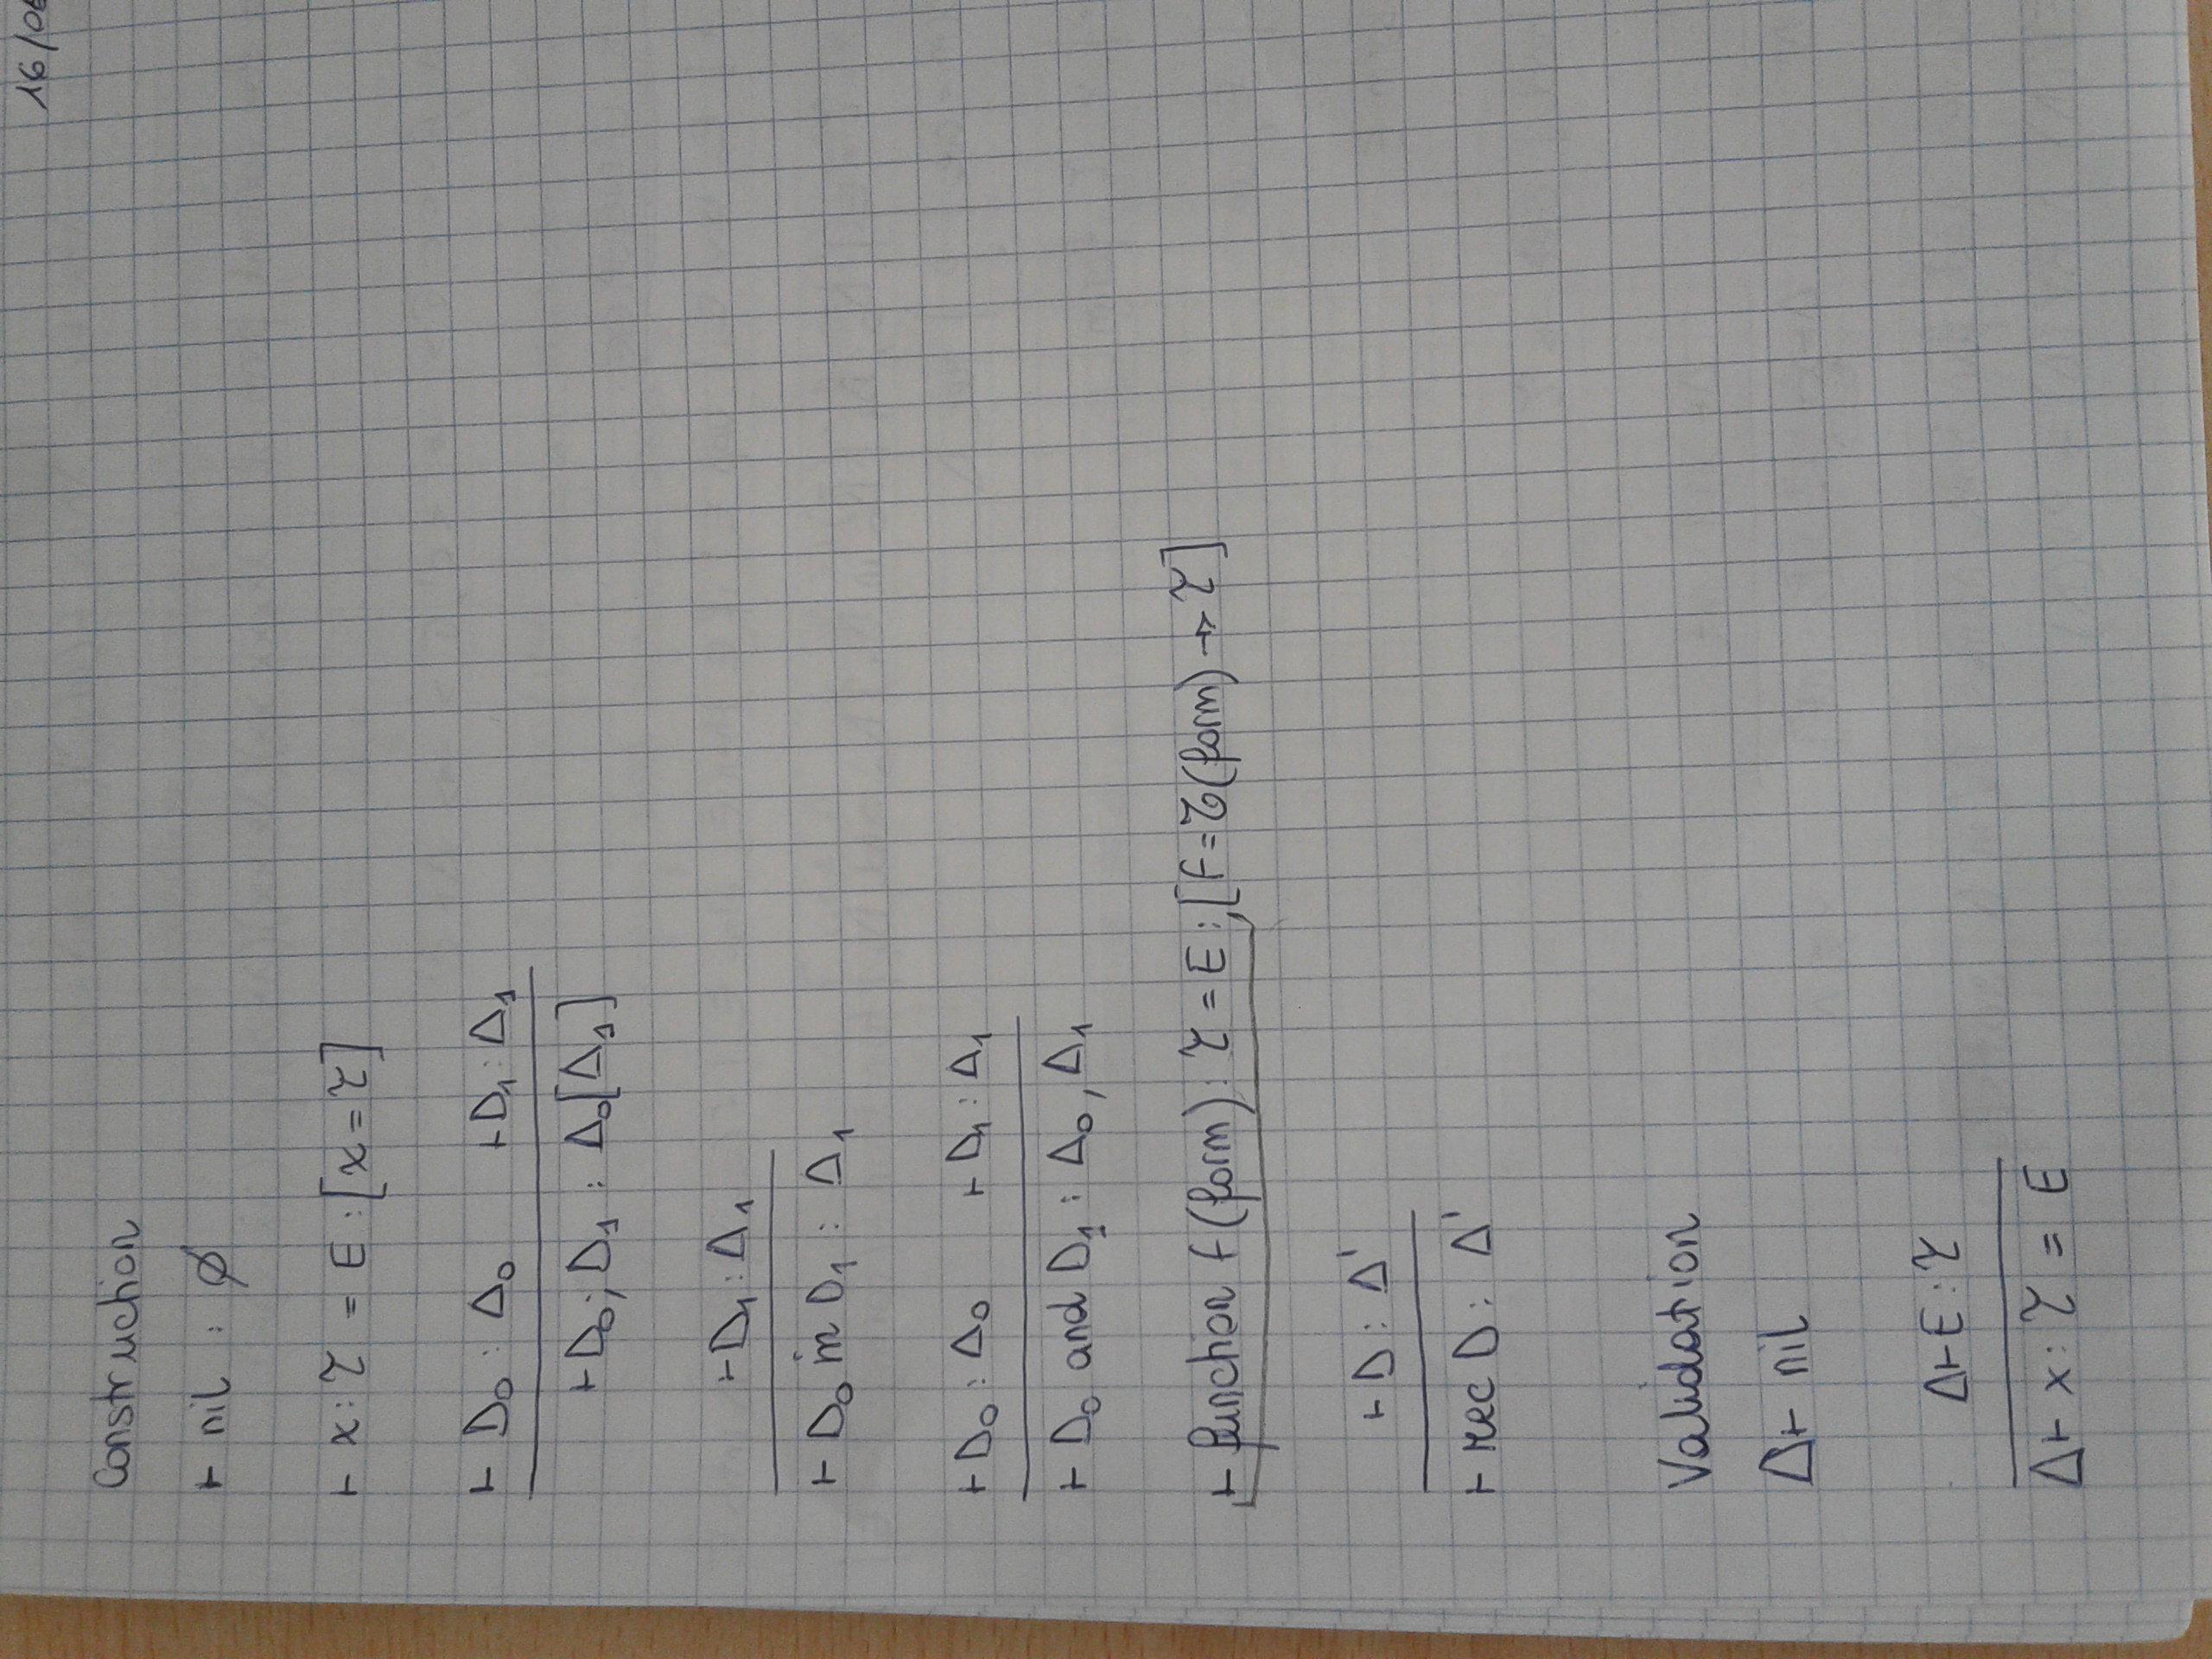 16/06
Construction
⊢ nil : ∅
⊢ x : τ = E : [x = τ]
⊢ D₀ : Δ₀ ⊢ D₁ : Δ₁
⊢ D₀; D₁ : Δ₀[Δ₁]
⊢ D₁ : Δ₁
⊢ D₀ in D₁ : Δ₁
⊢ D₀ : Δ₀ ⊢ D₁ : Δ₁
⊢ D₀ and D₁ : Δ₀, Δ₁
⊢ function f(form) : τ = E : [f = τ(form) → τ]
⊢ D : Δ'
⊢ rec D : Δ'
Validation
Δ ⊢ nil
Δ ⊢ E : τ
Δ ⊢ x : τ = E